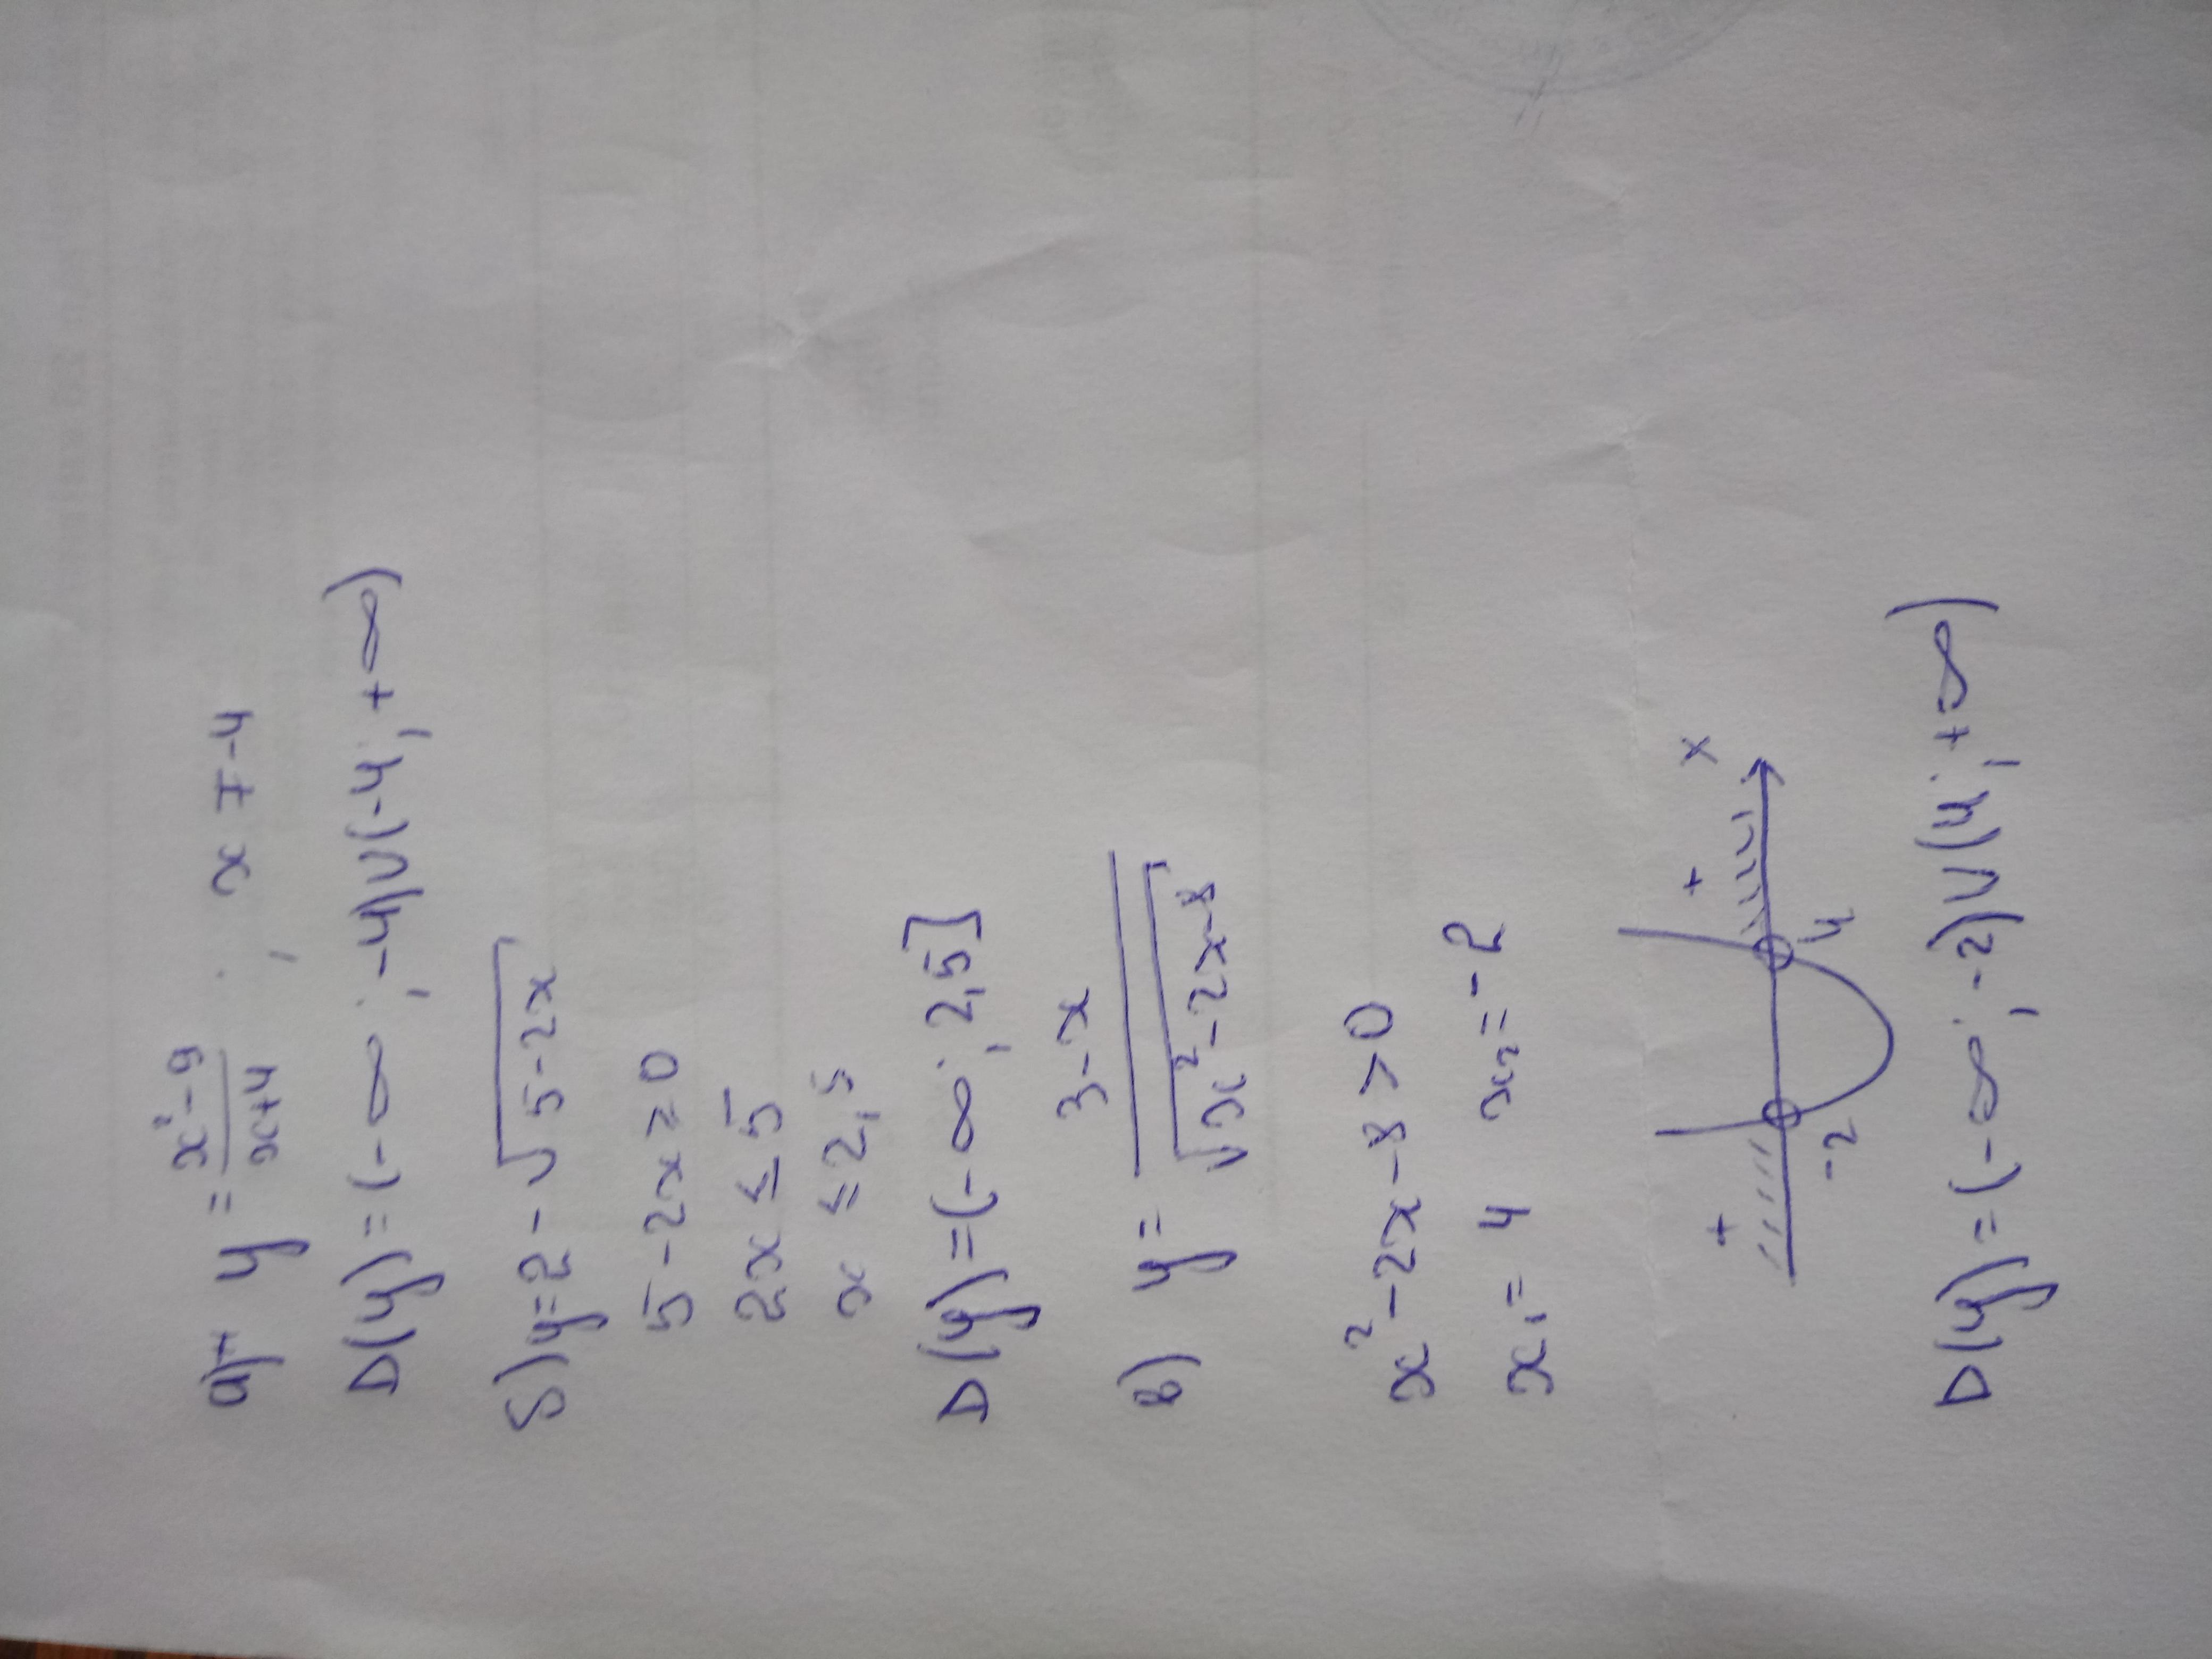 а) y = \frac{x²-9}{x+4} ; x ≠ -4
D(y) = (-∞ ; -4)U(-4; +∞)
б) y=2 - √5-2x
5-2x ≥ 0
2x ≤ 5
x ≤ 2,5
D(y) =(-∞; 2,5]
в) y = \frac{3-x}{√x²-2x-8}
x²-2x-8 > 0
x₁= 4 x₂=-2
+ + x
-2 4
D(y) = (-∞; -2)U(4; +∞)